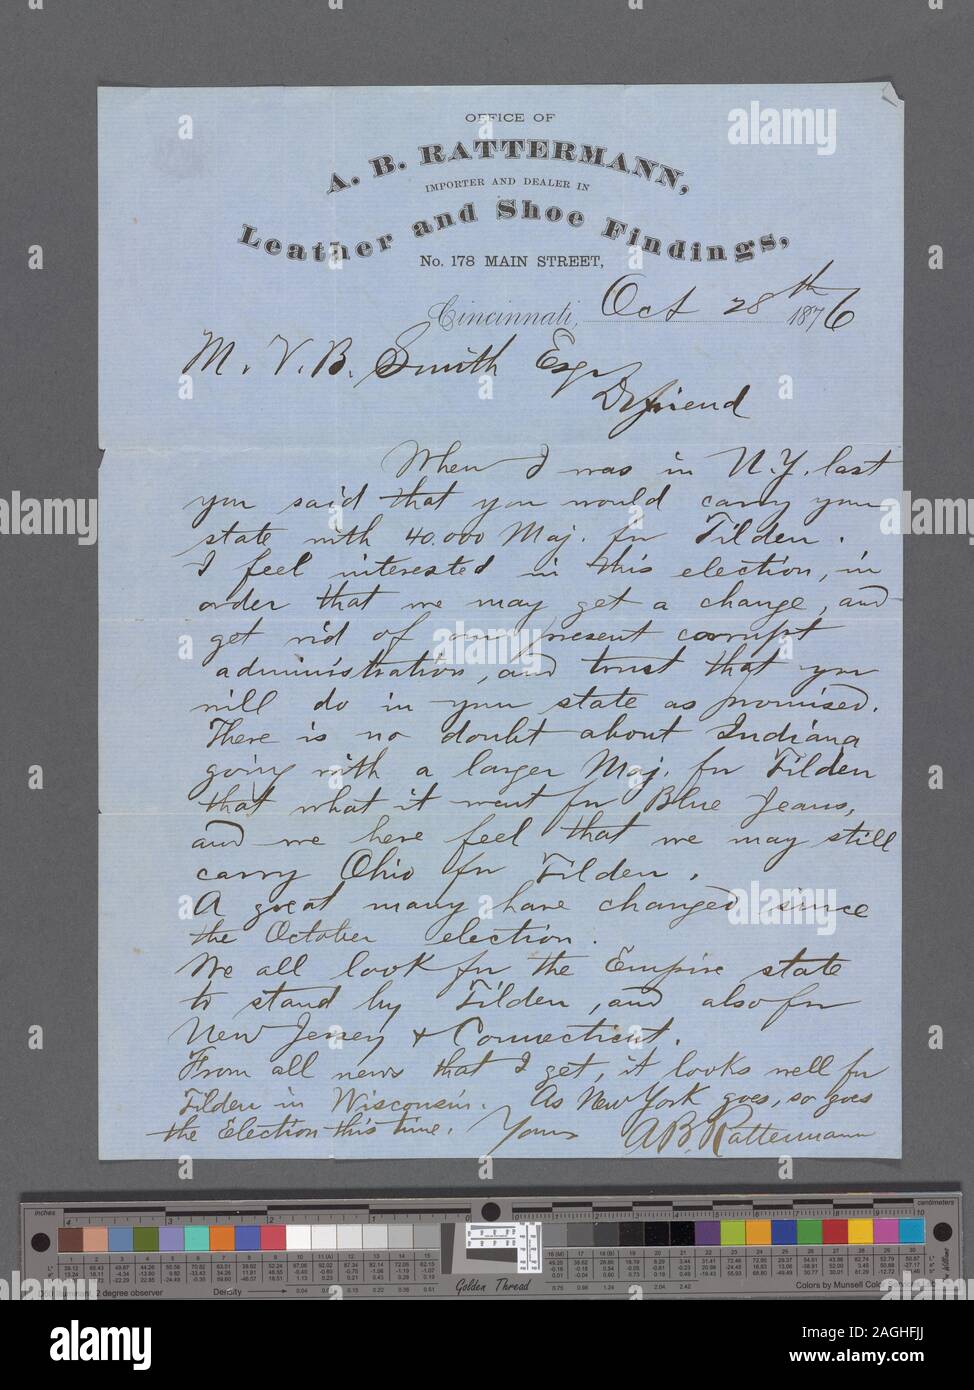 OFFICE OF
A. B. RATTERMANN,
IMPORTER AND DEALER IN
Leather and Shoe Findings,
No. 178 MAIN STREET,
Cincinnati, Oct 28th 1876
M. V. B. Smith Esq
Dr friend
When I was in N.Y. last
you said that you would carry your
state with 40.000 Maj. for Tilden.
I feel interested in this election, in
order that we may get a change, and
get rid of our present corrupt
administration, and trust that you
will do in your state as promised.
There is no doubt about Indiana
going with a larger Maj. for Tilden
that what it went for Blue Jeans,
and we here feel that we may still
carry Ohio for Tilden.
A great many have changed since
the October election.
We all look for the Empire state
to stand by Tilden, and also for
New Jersey & Connecticut.
From all news that I get, it looks well for
Tilden in Wisconsin. As New York goes, so goes
the Election this time. Yours A B. Rattermann
inches
centimeters
Density
Golden Thread
2 degree observer
Colors by Munsell Color
alamy
Image ID: 2AGHFJJ
www.alamy.com